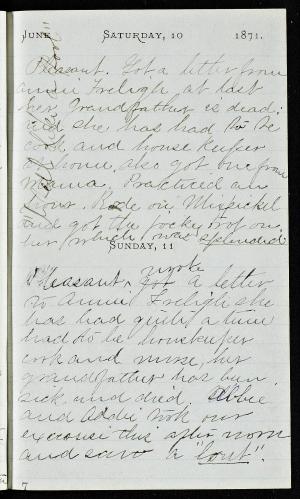 JUNE SATURDAY, 10 1871.
Pleasant. Got a letter from
Annie Freligh at last
her Grandfather is dead;
and she has had to be
cook and house keeper
at home, also got one from
Mama, Practiced an
hour. Rode on
and got the pocket trot on
her (which was splendid
SUNDAY, 11
Pleasant, wrote a letter
to Annie Freligh she
has had quite a time
had to be housekeeper
cook and nurse, her
grandfather has been
sick and died. Abbie
and Addie took our
exercise this after noon
and saw a "lout".
7